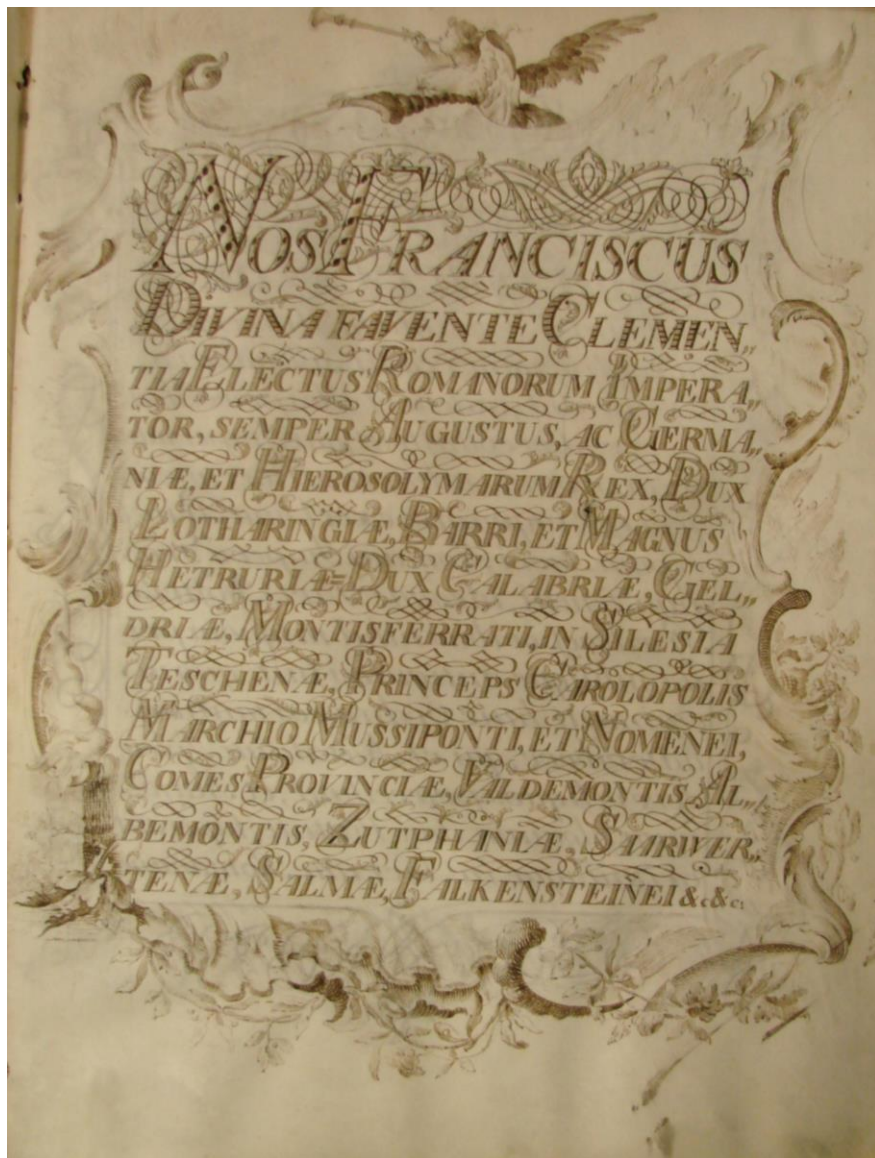 NOS FRANCISCUS
DIVINA FAVENTE CLEMEN„
TIA ELECTUS ROMANORUM IMPERA„
TOR, SEMPER AUGUSTUS, AC GERMA„
NIÆ, ET HIEROSOLYMARUM REX, DUX
LOTHARINGIÆ, BARRI, ET MAGNUS
HETRURIÆ=DUX CALABRIÆ, GEL„
DRIÆ, MONTISFERRATI, IN SILESIA
TESCHENÆ, PRINCEPS CAROLOPOLIS
MARCHIO MUSSIPONTI, ET NOMENEI,
COMES PROVINCIÆ, VALDEMONTIS, AL„
BEMONTIS, ZUTPHANIÆ, SAARWER„
TENÆ, SALMÆ, FALKENSTEINEI &c&c: